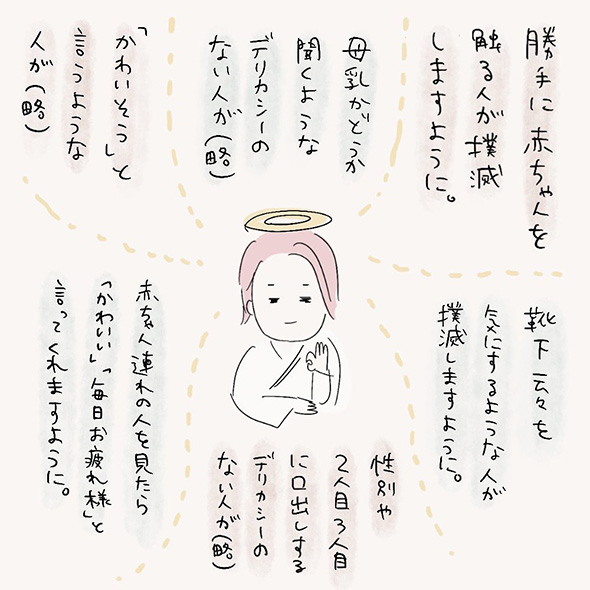 勝手に赤ちゃんを
触る人が撲滅
しますように。
母乳かどうか
聞くような
デリカシーの
ない人が(略)
「かわいそう」と
言うような
人が(略)
靴下云々を
気にするような人が
撲滅しますように。
性別や
2人目3人目
に口出しする
デリカシーの
ない人が(略)
赤ちゃん連れの人を見たら
「かわいい」「毎日お疲れ様」と
言ってくれますように。